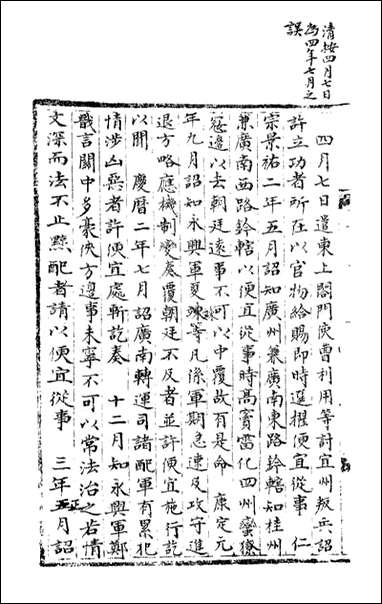 清按四月七日
為四年七月之
誤
四月七日遣東上閤門使曹利用等討宜州叛兵詔
許立功者所在以官物給賜即時選擢便宜從事　仁
宗景祐二年五月詔知廣州兼廣南東路鈐轄知桂州
兼廣南西路鈐轄以便宜從事時高竇雷化四州蠻獠
寇邊以去朝廷遠事不可以中覆故有是命　康定元
年九月詔知永興軍夏竦等凡係軍期急速及攻守進
退方略應機制變處覆朝廷不及者並許便宜施行訖
以聞　慶曆二年七月詔廣南轉運司諸配軍有累犯
情涉凶惡者許便宜處斬訖奏　十二月知永興軍鄭
戩言關中多豪俠方邊事未寧不可以常法治之若情
文深而法不止黥配者請以便宜從事　三年五月詔